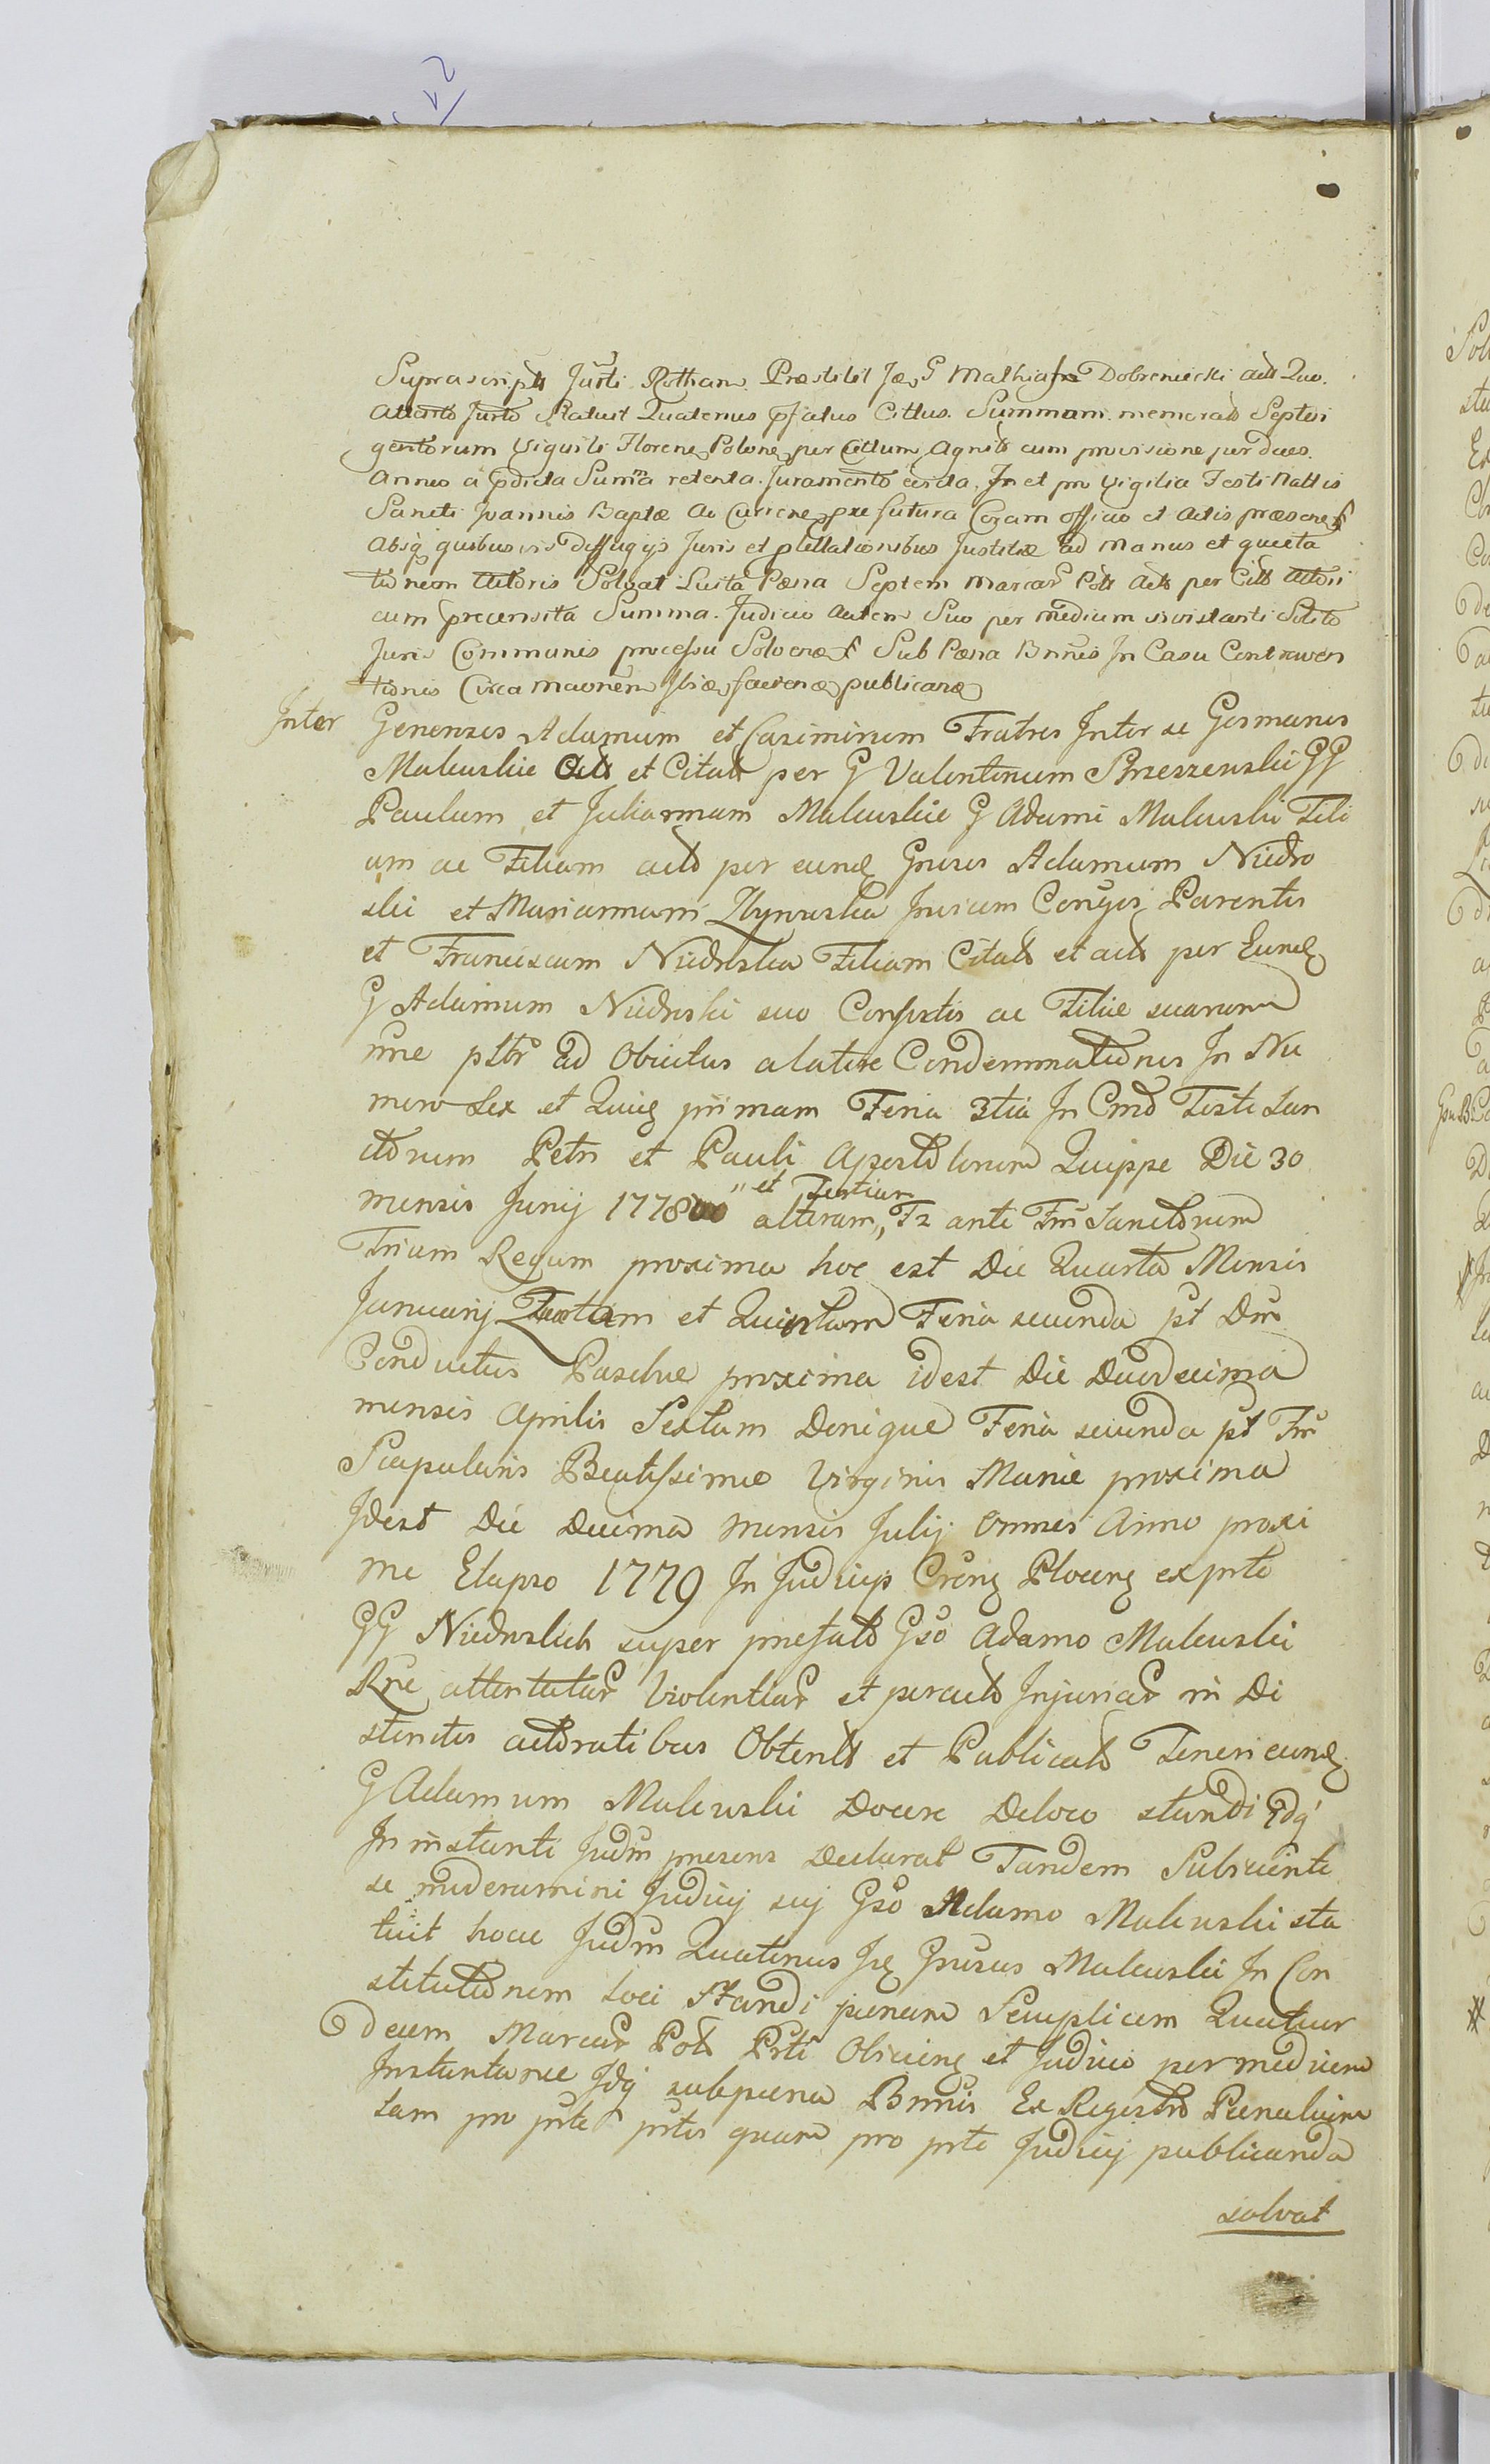 Suprascripti Justi Rotham Præstitit Jdę G Mathias Dobreniecki act Quo.
Attento Justo Statuit Quatenus pfatus Cittus. Summam memorat Septin
gentorum Viginti Florenę Polonę per Cittum Agnit cum provisione per duos.
Annos a pdicta Summa retenta. Juramento evicta. In et pro Vigilia Festi Nattis
Sancti Joannis Baptæ Ao Currenę pre futura Coram officio et Actis præsenę
Absq quibusvis Diffugijs Juris et plellationibus Justitiæ ad Manus et quieta
tionem Actoris Solvat Luita Pæna Septem Marcar Poll Act per Citt Actori
cum precensita Summa. Judicio autem Suo per medium in instanti Solito
Juris Communis processu Solvenæ Sub Pæna Bnnis In Casu Contraven
tionis Circa maonem Jbiæ facienæ publicanæ
Inter Generosos Adamum et Casimirum Fratres Inter se Germanos
Maluskie Act et Citat per G Valentinum Brzeszewski GG
Paulum et Juliannam Malewskie G Adami Malewski Fili
um ac Filiam act per eunę Gnrsos Adamum Niedro
ski et Mariannam Zlynuska Inviam Conjges Parentes
et Franciscam Niedroska Filiam Citat et act per Eunę
G Adamum Niedroski suo Consortis ac Filiæ suarum
nne pltr ad Obiectus a latere Condemnationes In Nu
mero Sex et Quię primam Feria 3tia In Cmo Festi San
ctorum Petri et Pauli Apostolorum Quippe Die 30
mensis Junij 1778 alteram „ et Tertiam Fz ante Fm Sanctorum
Trium Regum proxima hoc est Die Quarta Mensis
Januarij Quartam et Quintam Feria secunda pt Dm
Conductus Paschæ proxima idest Die Duodecima
mensis Aprilis Sextam Denique Feria secunda pt Fm
Scapularis Beatissimæ Virginis Mariæ proxima
Idest Die Decima mensis Julij Omnes Anno proxi
me Elapso 1779 In Judicijs Crenę Plocenę ex prte
GG Niedroskich super prefato Gso Adamo Malewski
Rne attentatar Violentiar et percato Injuriar in Di
stinctis actoratibus Obtent et Publicat Teneri eunę
G Adamum Malewski Docere De loco standi Idq
In instanti Judm presens Declarat Tandem Subiciente
se moderamini Judicij sui Gso Adamo Malewski sta
tuit hocce Judm Quatenus Idę Gnrsus Malewski In Con
stitutionem loci Standi penam Simplicem Quatuor
decem Marcar Poll Prti Obicienę et Judicio per medium
Instantanee Idq sub pæna Bnnis Ex Registro Pænalium
tam pro prte prtis quam pro prte Judicij publicanda
solvat